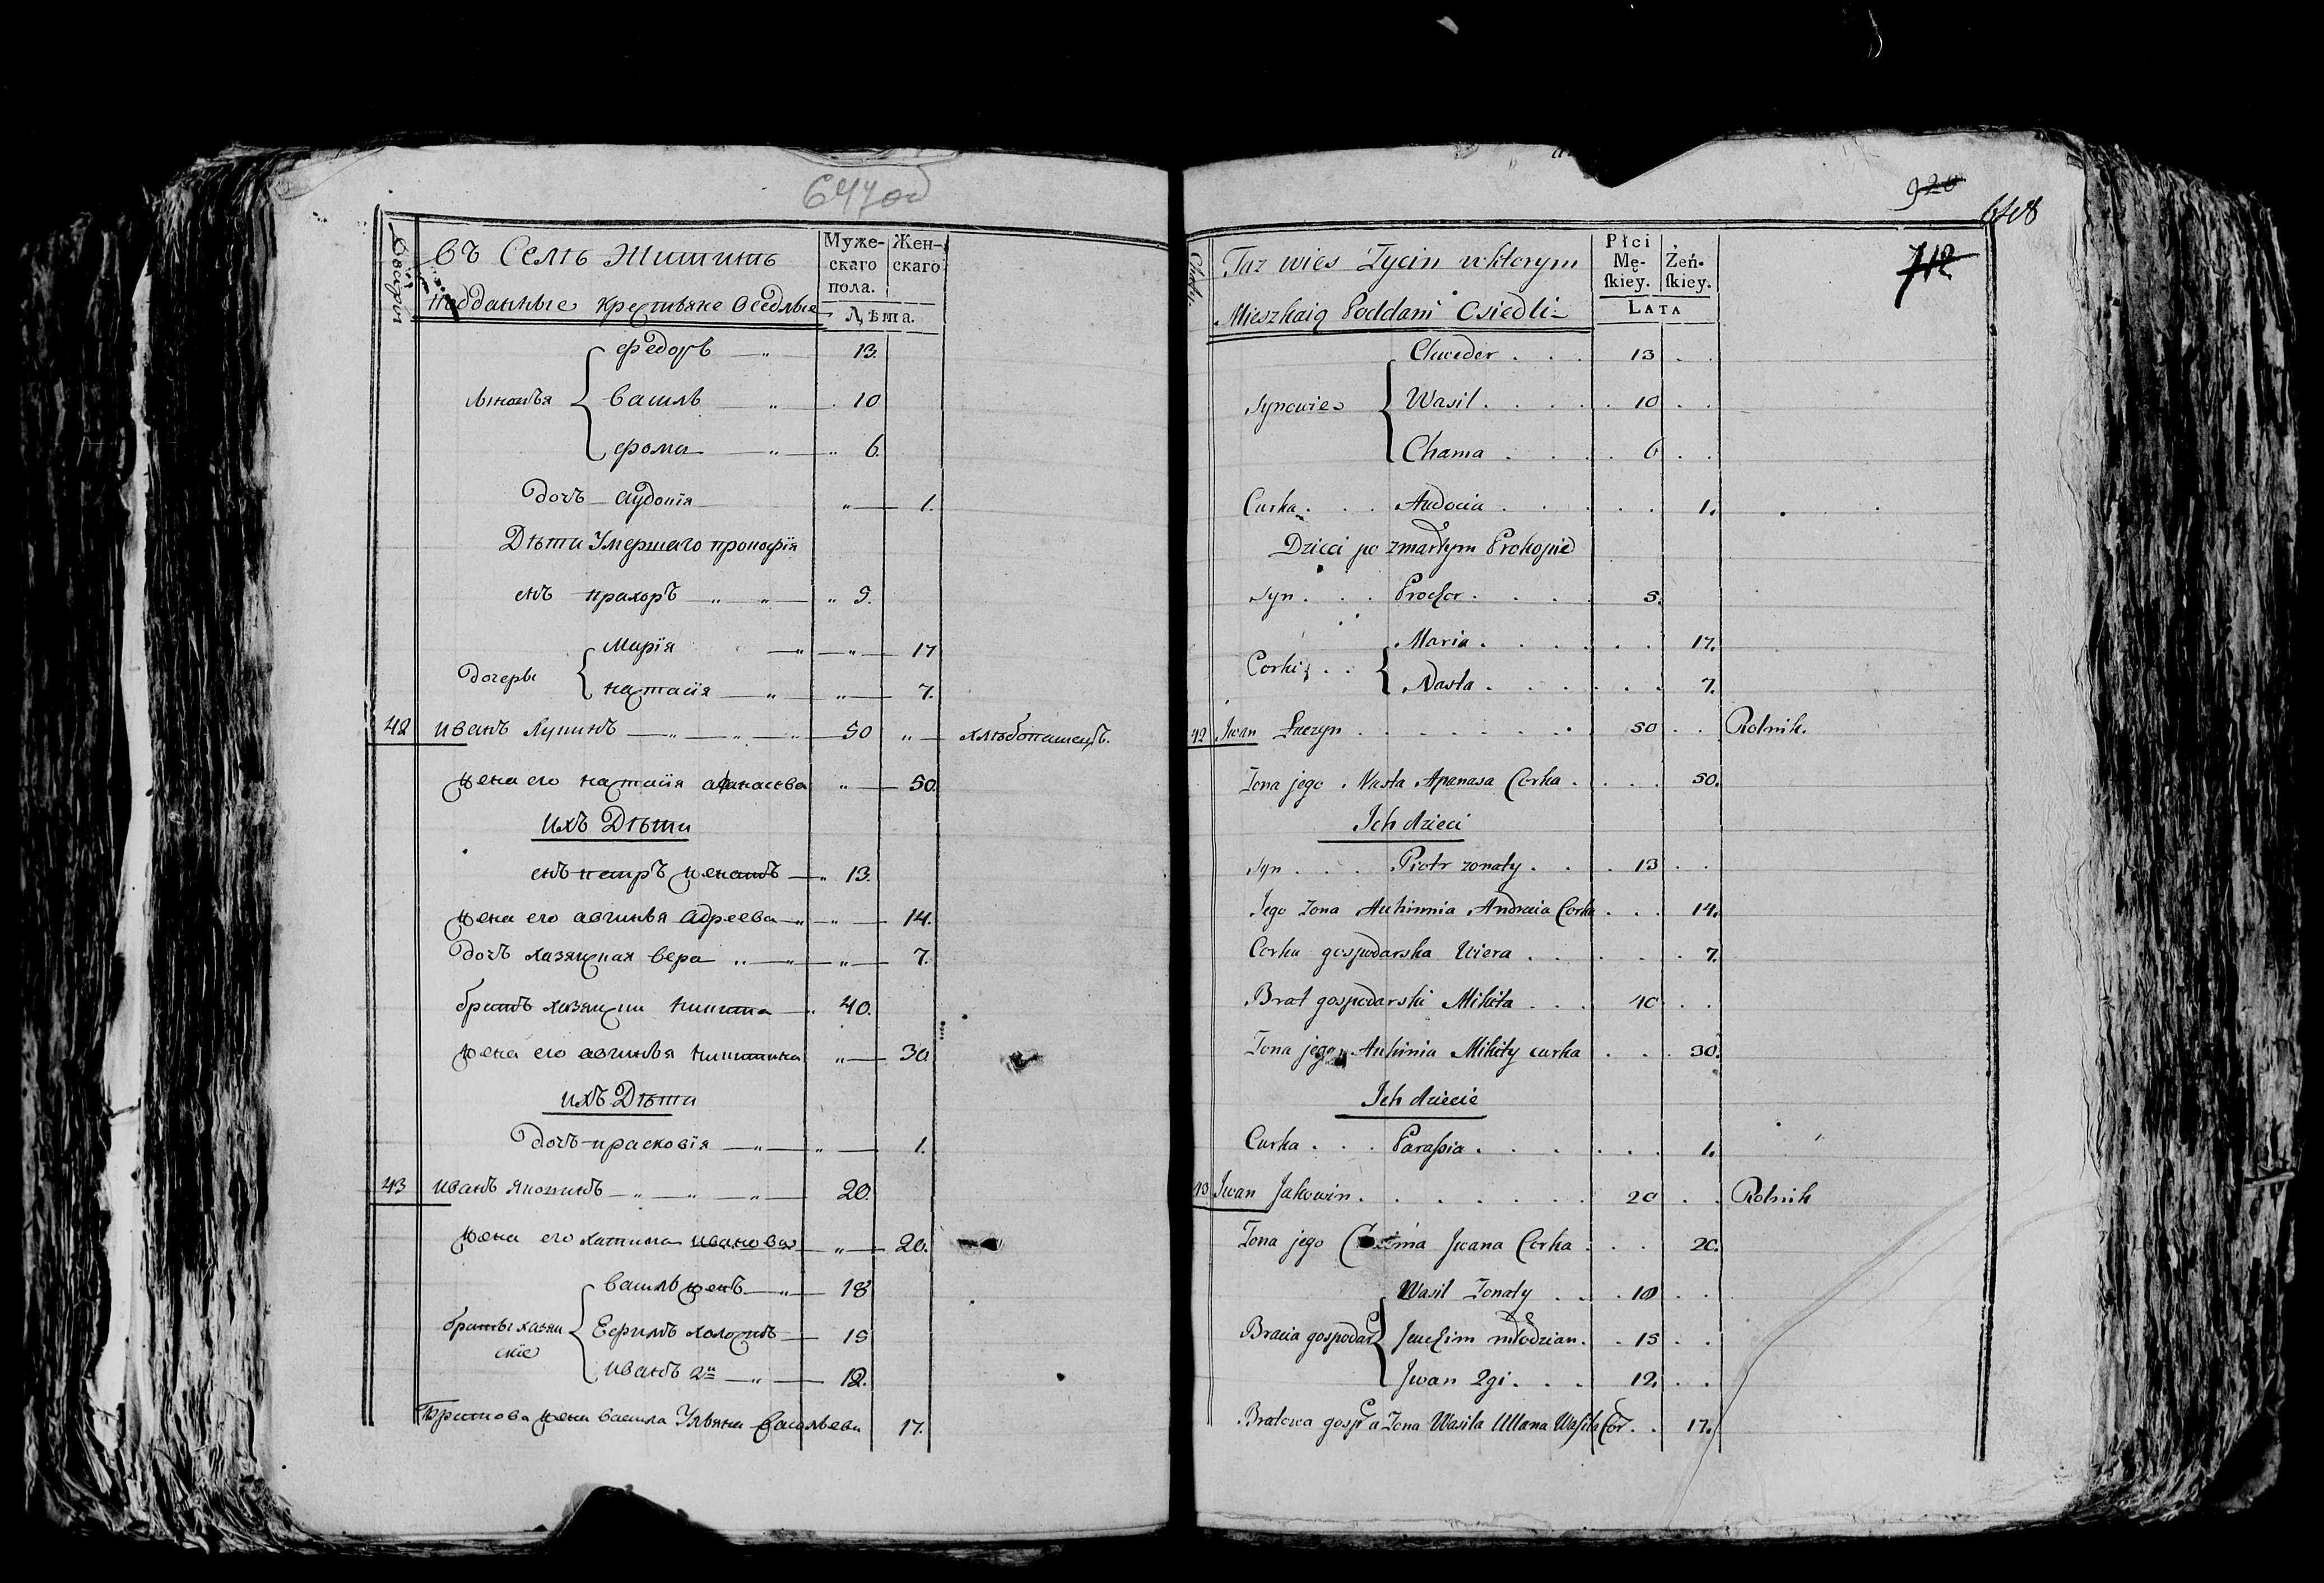 647 od
Въ Селѣ Житинѣ
подданные крестьяне Оседлые
Муже-
скаго
пола.
Жен-
скаго
Лѣта.
федоръ 13.
сыновья василь 10
фома 6.
дочь авдотія 1.
Дѣти Умершаго прокофія
снъ прахоръ 5.
марія 17
дочеры
настасія 7.
42 иванъ Лучинъ 50 хлѣбопашецъ.
жена его настасія афанасева 50.
ихъ Дѣти
снъ петръ женатъ 13.
жена его авгинья адреева 14.
дочь хазяская вера 7.
братъ хазяскіи никита 40.
жена его авгинья никитина 30.
ихъ Дѣти
дочь прасковія 1.
43 иванъ яковинъ 20.
жена его иванова 20.
василь женъ 18
братьи хазяи
скіе
Ефимъ холостъ 15
иванъ 2й 12.
братова жена васила Ульяна васильева 17.
920
648
712
Taz wies Zycin w ktorym
Mieszkaią Poddani Osiedli
Płci
Mę-
skiey.
Żeń-
skiey.
LATA
Chweder . . . 13 . .
Synowie Wasil . . . . 10 . .
Chama . . . . 6 . .
Curka . . . Audocia . . . . . 1.
Dzieci po zmarłym Prokopie
Syn . . . Prochor . . . . 5.
Maria . . . . . . 17.
Corki . .
Nasta . . . . . . 7.
42 Iwan Łuczyn . . . . . . . 50 . . Rolnik.
Zona jego . Nasta Apanasa Corka . . . . 50.
Ich dzieci
syn . . . Piotr zonaty . . . 13 . .
Jego zona Auhinnia Andreia Corka . . . 14.
Corka gospodarska Wiera . . . . . 7.
Brat gospodarski Mikita . . . 40 . .
Zona jego Auhinia Mikity curka . . . 30.
Ich dziecie
Curka . . . Paraſia . . . . . . 1.
43 Iwan Jakowin . . . . . . . 20 . . Rolnik
Zona jego Iwana Corka . . . 20.
Wasil Zonaty . . . 18 . .
Bracia gospodar Jauchim młodzian . . 15 . .
Iwan 2gi . . . 12. . .
Bratowa gosp a Zona Wasila Ullana Waſila Cor . . 17.